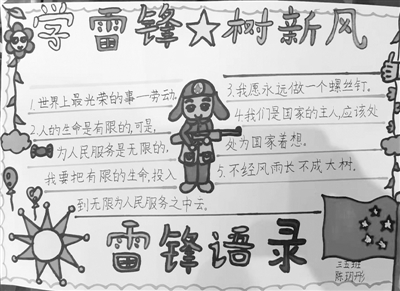 学雷锋★树新风
1.世界上最光荣的事—劳动.
2.人的生命是有限的,可是,
为人民服务是无限的.
我要把有限的生命,投入
到无限为人民服务之中云.
3.我愿永远做一个螺丝钉.
4.我们是国家的主人,应该处
处为国家着想.
5.不经风雨长不成大树.
雷锋语录